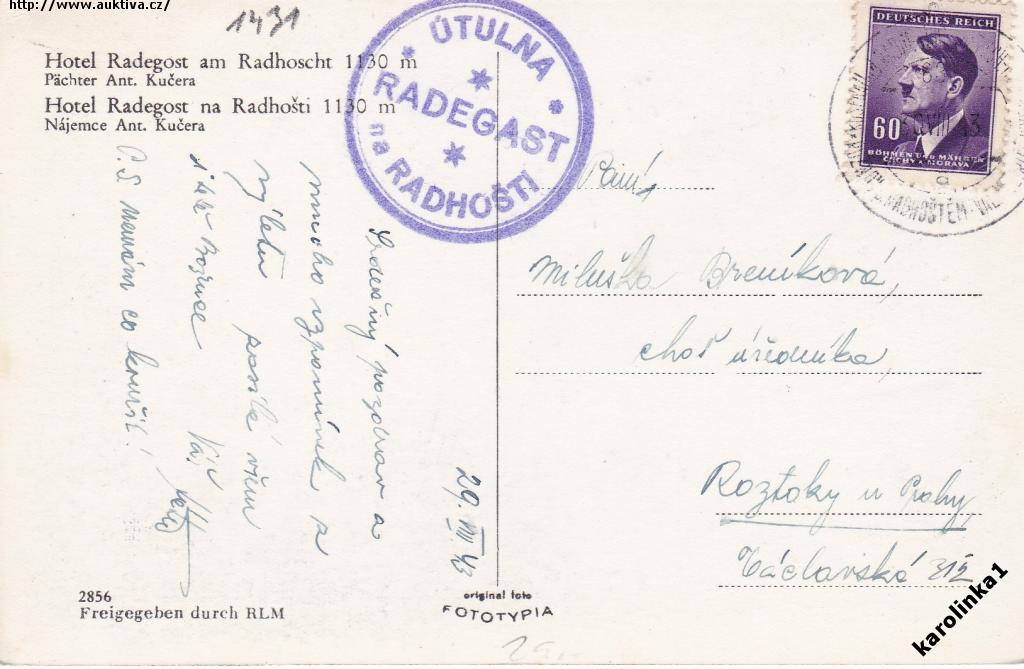 http://www.auktiva.cz/
1431
Hotel Radegost am Radhoscht 1130 m
Pächter Ant. Kučera
Hotel Radegost na Radhošti 1130 m
Nájemce Ant. Kučera
ÚTULNA
RADEGAST
na RADHOŠTI
DEUTSCHES REICH
60
BÖHMEN UND MÄHREN
ČECHY A MORAVA
VIII 43
RADHOŠTĚM
Paní
Miluška Breníková,
choť úředníka,
Roztoky u Prahy,
Václavská 312
Srdečný pozdrav a
mnoho vzpomínek z
výletu posílá vám
Váš
P.S. nemám co kouřit!
29. VIII. 43
2856
Freigegeben durch RLM
original foto
FOTOTYPIA
karolinka1